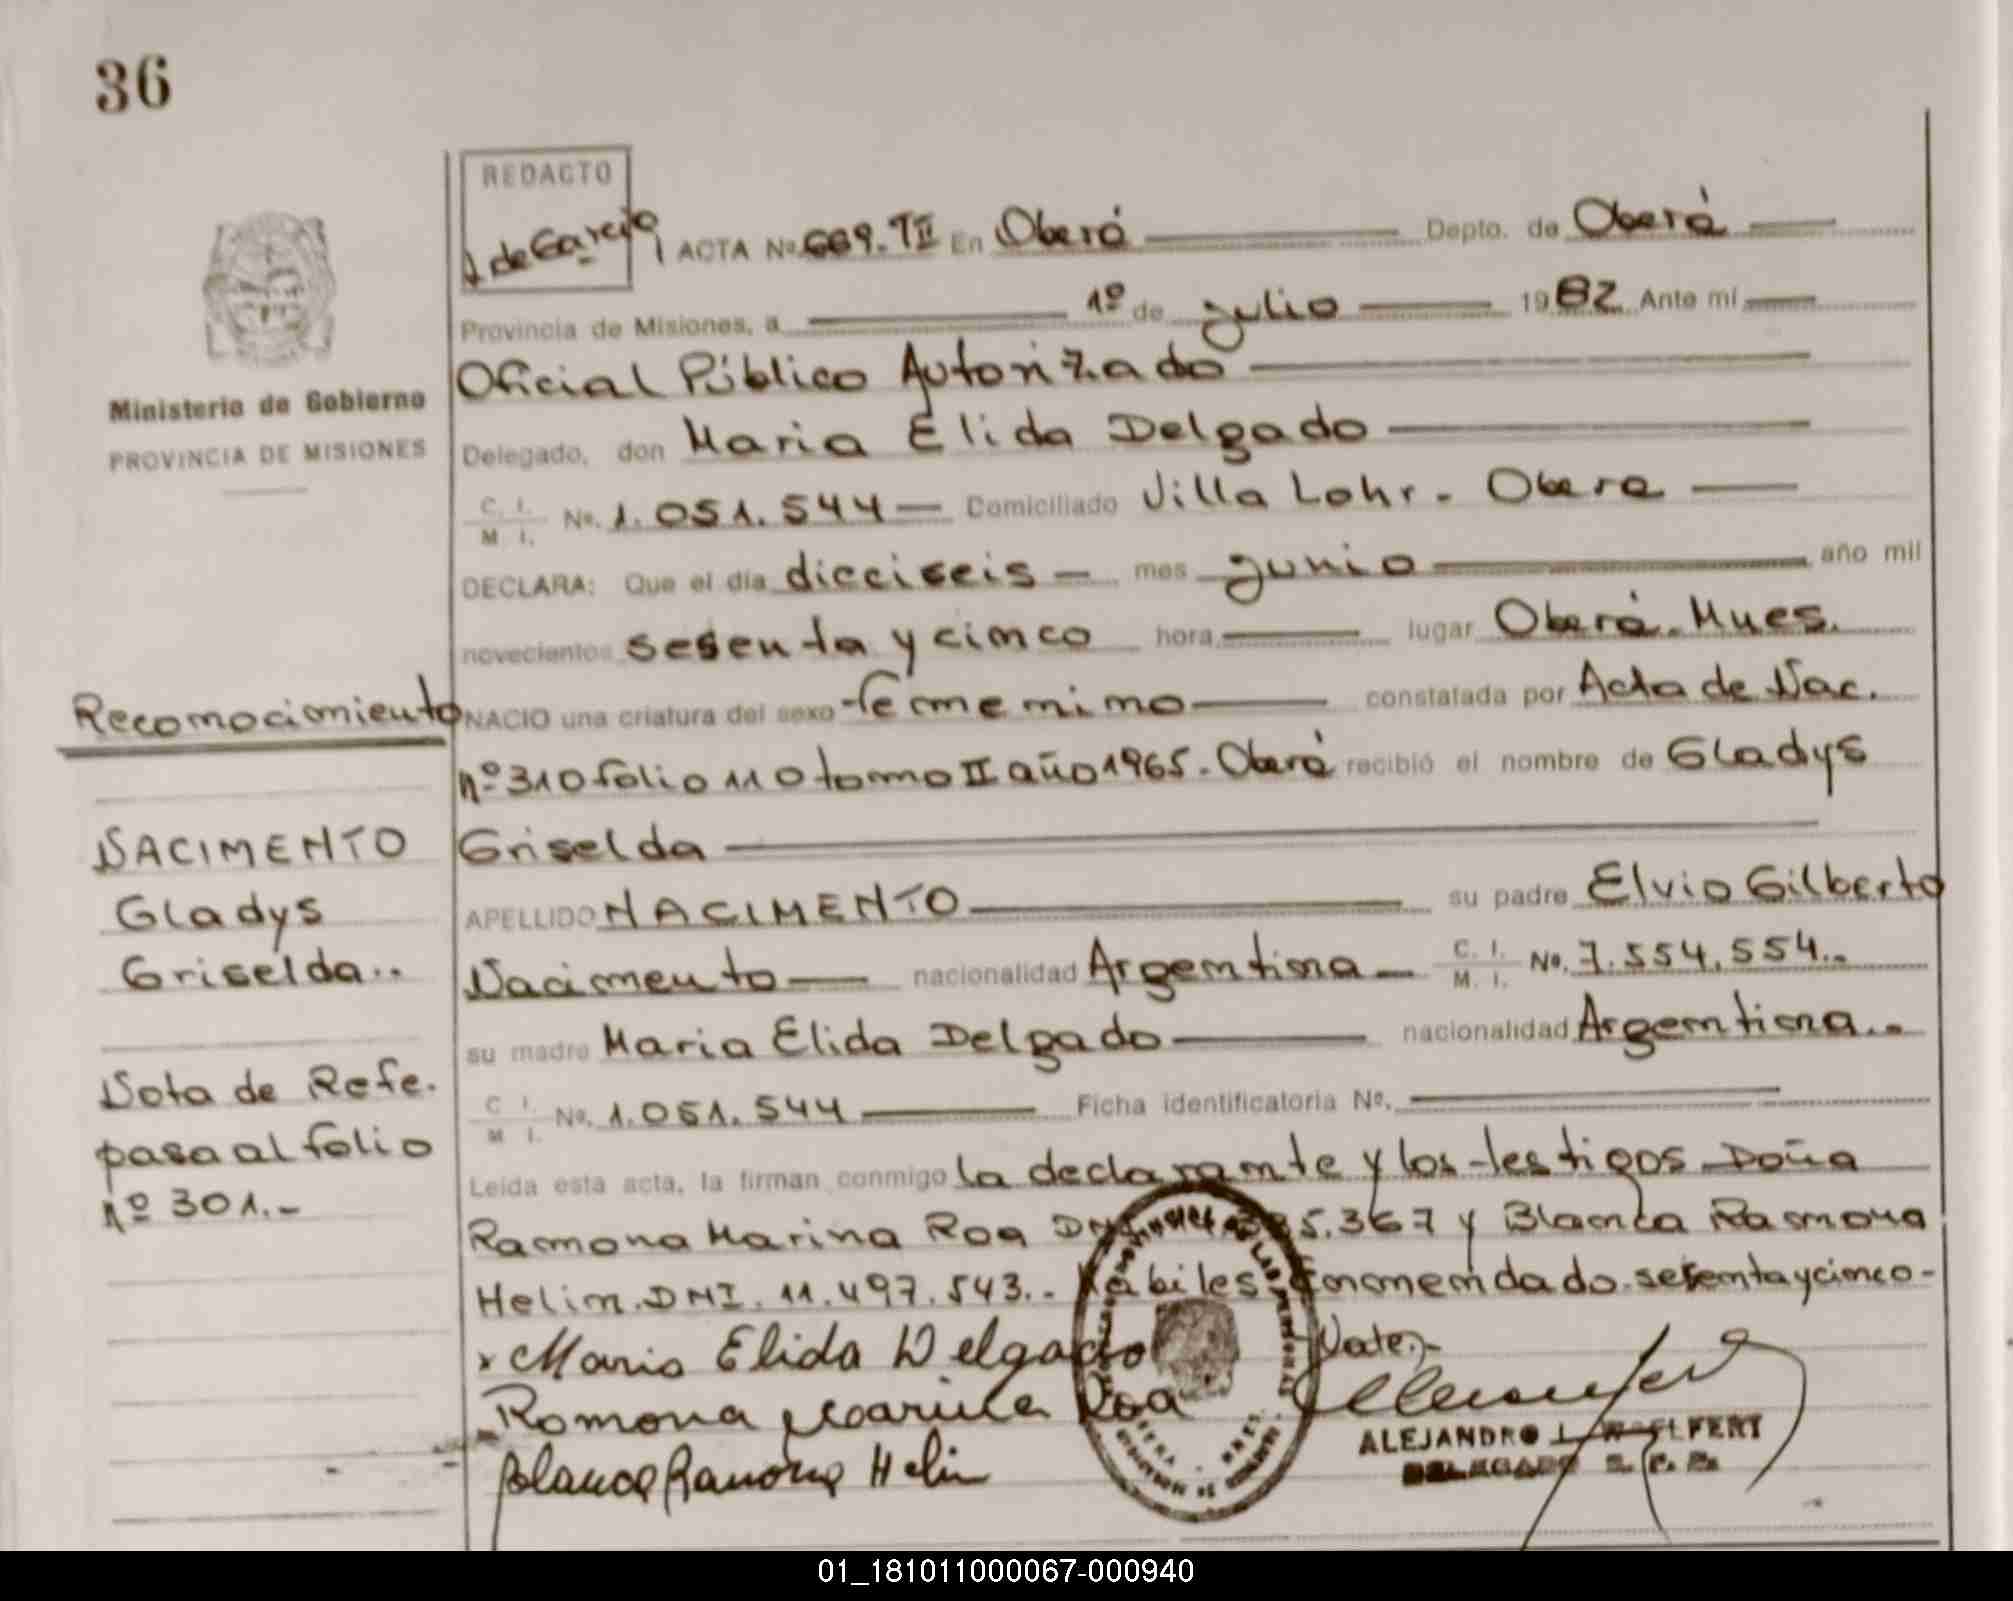 36
REDACTO
ACTA No. 669. TII En Oberá Depto. de Oberá
Provincia de Misiones, a 1º de julio 1982 Ante mí
Oficial Público Autorizado
Ministerio de Gobierno
PROVINCIA DE MISIONES
Delegado, don Maria Elida Delgado
C. I. M. I. No. 1.051.544 Domiciliado Villa Lohr - Obera
DECLARA: Que el día dieciseis mes junio año mil
novecientos sesenta y cinco hora lugar Oberá. Mnes.
Reconocimiento
NACIO una criatura del sexo femenino constatada por Acta de Nac.
nº 310 folio 110 tomo II año 1965. Oberá recibió el nombre de Gladys
Griselda
NACIMENTO
Gladys
Griselda..
APELLIDO NACIMENTO su padre Elvio Gilberto
Nacimento nacionalidad Argentina C. I. M. I. No. 7.554.554..
su madre Maria Elida Delgado nacionalidad Argentina..
C. I. M. I. No. 1.051.544 Ficha identificatoria No.
Nota de Refe.
pasa al folio
nº 301.-
Leída esta acta, la firman conmigo la declarante y los testigos Doña
Ramona Marina Roa 5.367 y Blanca Ramona
Helin. DNI. 11.497.543.. habiles Enmendado. sesenta y cinco-
Vale.-
Maria Elida Delgado
Ramona Marina Roa
Blanca Ramona Helin
ALEJANDRO
DELEGADO
01_181011000067-000940